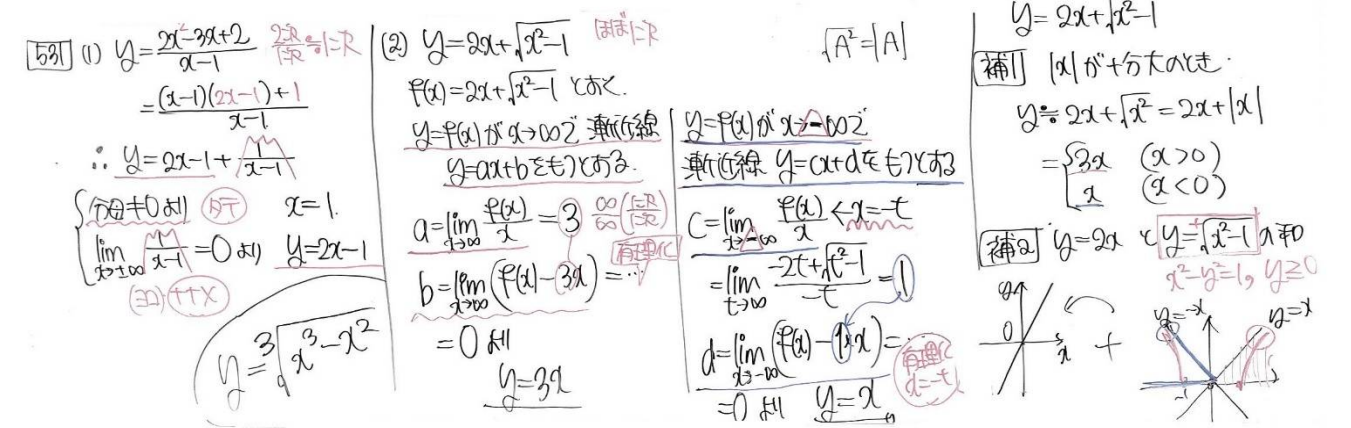 531 (1) y=(2x²-3x+2)/(x-1) 2=R/1=R ≒1=R
=((x-1)(2x-1)+1)/(x-1)
∴ y=2x-1+1/(x-1)
{分母≠0より タテ x=1.
lim x→±∞ 1/(x-1)=0より y=2x-1
(ヨコ)ナナメ
y=³√(x³-x²)
(2) y=2x+√(x²-1) ほぼ1=R
f(x)=2x+√(x²-1) とおく.
y=f(x)がx→∞で 漸近線
y=ax+bをもつとする.
a=lim x→∞ f(x)/x=3 ∞/∞(1=R/1=R)
有理化
b=lim x→∞ (f(x)-3x)=…
=0 より
y=3x
√A²=|A|
y=f(x)がx→-∞で
漸近線 y=cx+dをもつとする
c=lim x→-∞ f(x)/x ← x=-t
=lim t→∞ (-2t+√(t²-1))/(-t)=1
d=lim x→-∞ (f(x)-1・x)=…
有理化 x=-t
=0 より y=x
y=2x+√(x²-1)
補1 |x|が十分大のとき.
y≒2x+√x²=2x+|x|
={3x (x>0)
x (x<0)
補2 y=2x と y=+√(x²-1) の和
x²-y²=1, y≥0
y
0
x
+
y=-x
y=x
-1